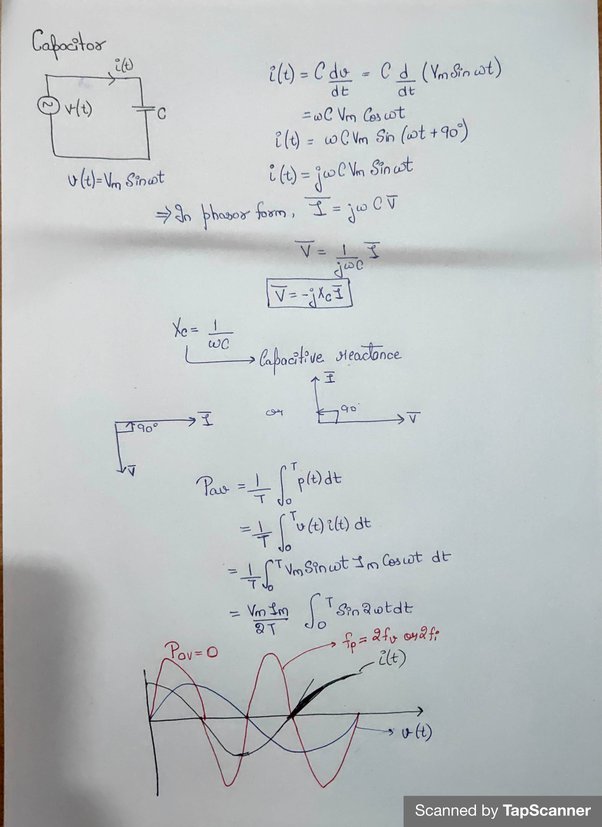 Capacitor
i(t)
v(t)
C
v(t)=Vm Sinωt
i(t) = C dv/dt = C d/dt (Vm Sin ωt)
= ωC Vm Cos ωt
i(t) = ωC Vm Sin (ωt + 90°)
i(t) = jωC Vm Sin ωt
⇒ In phasor form, I̅ = jωC V̅
V̅ = 1/jωC I̅
V̅ = -jXc I̅
Xc = 1/ωC
Capacitive reactance
90° I̅
V̅
or
I̅
90°
V̅
Pav = 1/T ∫₀ᵀ p(t) dt
= 1/T ∫₀ᵀ v(t) i(t) dt
= 1/T ∫₀ᵀ Vm Sin ωt Im Cos ωt dt
= Vm Im/2T ∫₀ᵀ Sin 2ωt dt
Pav = 0
fp = 2fv or 2fi
i(t)
v(t)
Scanned by TapScanner